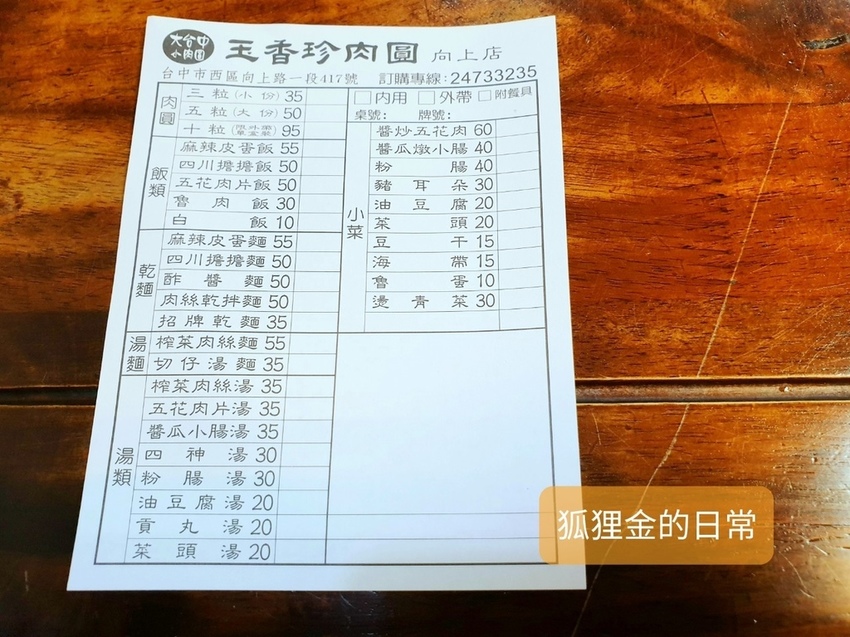 大台中
小肉圓
玉香珍肉圓 向上店
台中市西區向上路一段417號 訂購專線:24733235
肉圓
三粒(小份) 35
五粒(大份) 50
十粒 95
飯類
麻辣皮蛋飯 55
四川擔擔飯 50
五花肉片飯 50
魯肉飯 30
白飯 10
乾麵
麻辣皮蛋麵 55
四川擔擔麵 50
酢醬麵 50
肉絲乾拌麵 50
招牌乾麵 35
湯麵
榨菜肉絲麵 55
切仔湯麵 35
湯類
榨菜肉絲湯 35
五花肉片湯 35
醬瓜小腸湯 35
四神湯 30
粉腸湯 30
油豆腐湯 20
貢丸湯 20
菜頭湯 20
□內用 □外帶 □附餐具
桌號: 牌號:
小菜
醬炒五花肉 60
醬瓜燉小腸 40
粉腸 40
豬耳朵 30
油豆腐 20
菜頭 20
豆干 15
海帶 15
魯蛋 10
燙青菜 30
狐狸金的日常